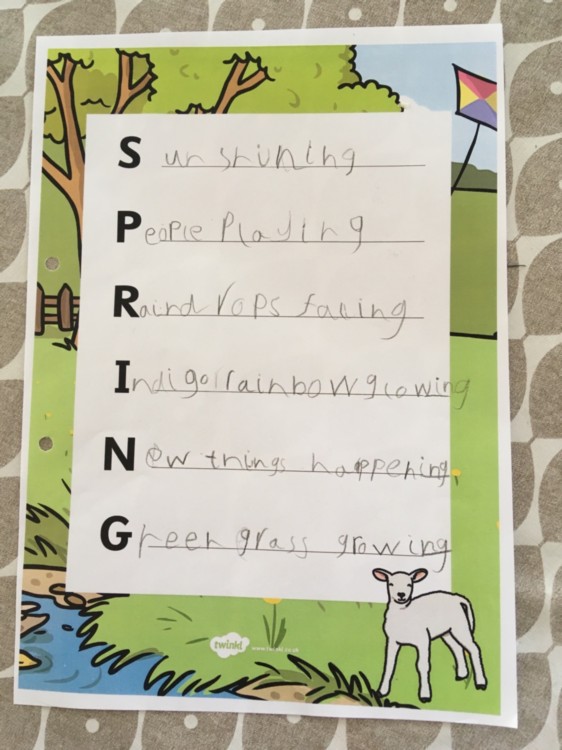 Sun shining
People Playing
Raindrops facing
Indigo rainbow glowing
New things happening.
Green grass growing
twinkl
www.twinkl.co.uk